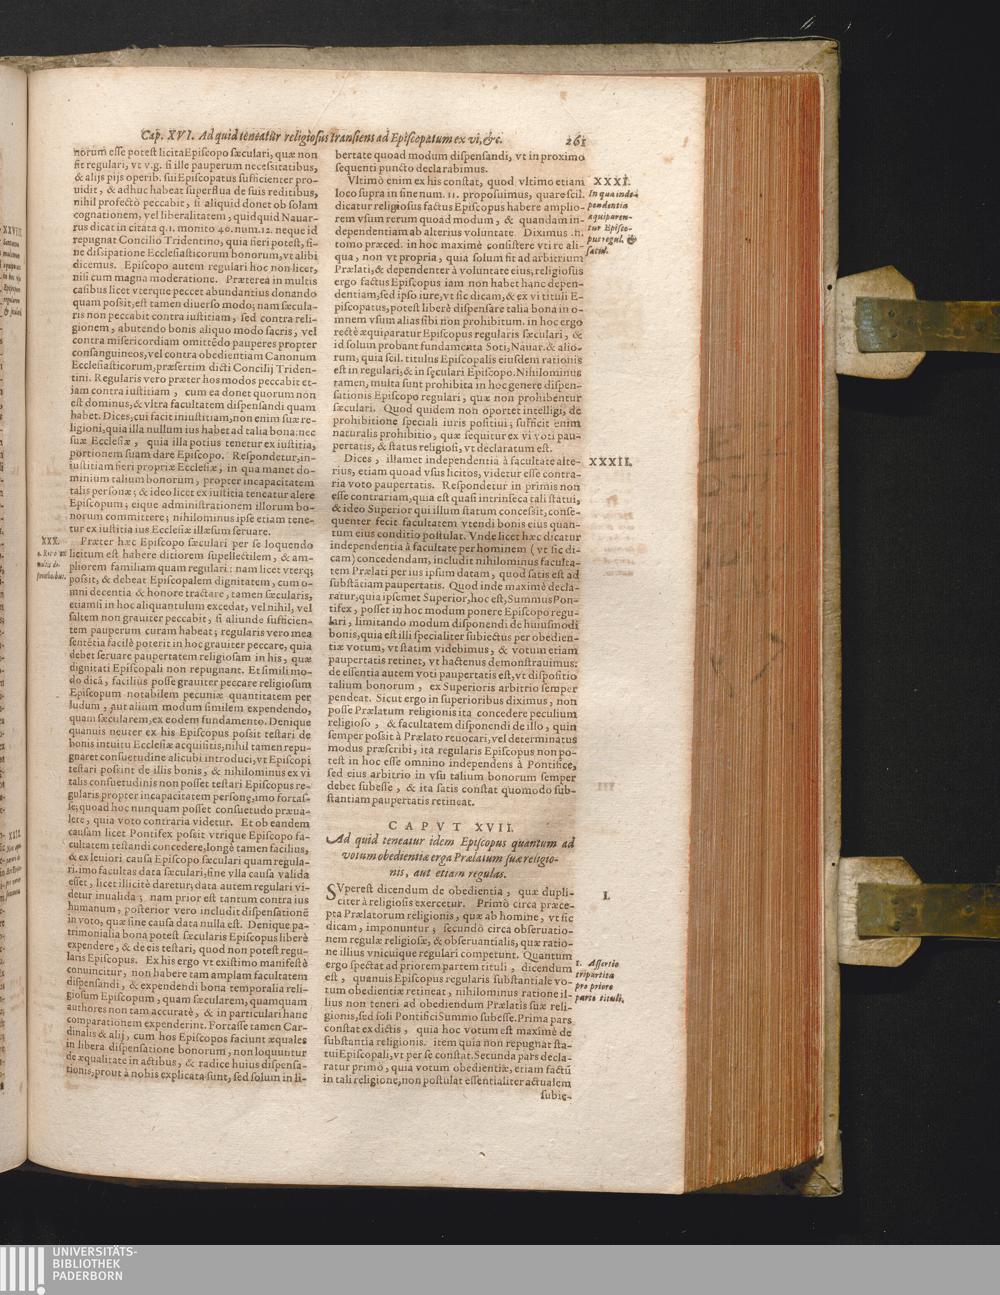 Cap. XVI. Ad quid teneatur religiosus transiens ad Episcopatum ex vi, &c. 261
norum esse potest licita Episcopo sæculari, quæ non
sit regulari, vt v.g. si ille pauperum necessitatibus,
& alijs pijs operib. sui Episcopatus sufficienter pro-
uidit, & adhuc habeat superflua de suis reditibus,
nihil profectò peccabit, si aliquid donet ob solam
cognationem, vel liberalitatem, quidquid Nauar-
rus dicat in citata q.1. monito 40. num.12. neque id
repugnat Concilio Tridentino, quia fieri potest, si-
ne dissipatione Ecclesiasticorum bonorum, vt alibi
dicemus. Episcopo autem regulari hoc non licet,
nisi cum magna moderatione. Præterea in multis
casibus licet vterque peccet abundantius donando
quam possit, est tamen diuerso modo; nam sæcula-
ris non peccabit contra iustitiam, sed contra reli-
gionem, abutendo bonis aliquo modo sacris, vel
contra misericordiam omittẽdo pauperes propter
consanguineos, vel contra obedientiam Canonum
Ecclesiasticorum, præsertim dicti Concilij Triden-
tini. Regularis vero præter hos modos peccabit et-
iam contra iustitiam, cum ea donet quorum non
est dominus, & vltra facultatem dispensandi quam
habet. Dices, cui facit iniustitiam, non enim suæ re-
ligioni, quia illa nullum ius habet ad talia bona: nec
suæ Ecclesiæ, quia illa potius tenetur ex iustitia,
portionem suam dare Episcopo. Respondetur, in-
iustitiam fieri propriæ Ecclesiæ, in qua manet do-
minium talium bonorum, propter incapacitatem
talis personæ; & ideo licet ex iustitia teneatur alere
Episcopum, eique administrationem illorum bo-
norum committere; nihilominus ipse etiam tene-
tur ex iustitia ius Ecclesiæ illæsum seruare.
XXX.
Præter hæc Episcopo sæculari per se loquendo
licitum est habere ditiorem supellectilem, & am-
pliorem familiam quam regulari: nam licet vterq;
possit, & debeat Episcopalem dignitatem, cum o-
mni decentia & honore tractare, tamen sæcularis,
etiamsi in hoc aliquantulum excedat, vel nihil, vel
saltem non grauiter peccabit, si aliunde sufficien-
tem pauperum curam habeat; regularis vero mea
sentẽtia facilè poterit in hoc grauiter peccare, quia
debet seruare paupertatem religiosam in his, quæ
dignitati Episcopali non repugnant. Et simili mo-
do dicã, facilius posse grauiter peccare religiosum
Episcopum notabilem pecuniæ quantitatem per
ludum, aut alium modum similem expendendo,
quam sæcularem, ex eodem fundamento. Denique
quanuis neuter ex his Episcopus possit testari de
bonis intuitu Ecclesiæ acquisitis, nihil tamen repu-
gnaret consuetudine alicubi introduci, vt Episcopi
testari possint de illis bonis, & nihilominus ex vi
talis consuetudinis non posset testari Episcopus re-
gularis propter incapacitatem personę, imo fortas-
se, quoad hoc nunquam posset consuetudo præua-
lere, quia voto contraria videtur. Et ob eandem
causam licet Pontifex possit vtrique Episcopo fa-
cultatem testandi concedere, longè tamen facilius,
& ex leuiori causa Episcopo sæculari quam regula-
ri. imo facultas data sæculari, sine ylla causa valida
esset, licet illicitè daretur; data autem regulari vi-
detur inualida; nam prior est tantum contra ius
humanum, posterior vero includit dispensationẽ
in voto, quæ sine causa data nulla est. Denique pa-
trimonialia bona potest sæcularis Episcopus liberè
expendere, & de eis testari, quod non potest regu-
laris Episcopus. Ex his ergo vt existimo manifestè
conuincitur, non habere tam amplam facultatem
dispensandi, & expendendi bona temporalia reli-
giosum Episcopum, quam sæcularem, quamquam
authores non tam accuratè, & in particulari hanc
comparationem expenderint. Fortasse tamen Car-
dinalis & alij, cum hos Episcopos faciunt æquales
in libera dispensatione bonorum, non loquuntur
de æqualitate in actibus, & radice huius dispensa-
tionis, prout à nobis explicata sunt, sed solum in li-
bertate quoad modum dispensandi, vt in proximo
sequenti puncto declarabimus.
XXXI.
In qua inde-
pendentia
æquiparen-
tur Episco-
pus regul. &
sæcul.
Vltimò enim ex his constat, quod vltimo etiam
loco supra in fine num. 11. proposuimus, quare scil.
dicatur religiosus factus Episcopus habere amplio-
rem vsum rerum quoad modum, & quandam in-
dependentiam ab alterius voluntate. Diximus .n.
tomo præced. in hoc maximè consistere vti re ali-
qua, non vt propria, quia solum fit ad arbitrium
Prælati, & dependenter à voluntate eius, religiosus
ergo factus Episcopus iam non habet hanc depen-
dentiam, sed ipso iure, vt sic dicam, & ex vi tituli E-
piscopatus, potest liberè dispensare talia bona in o-
mnem vsum alias sibi non prohibitum. in hoc ergo
rectè æquiparatur Episcopus regularis sæculari, &
id solum probant fundamenta Soti, Nauar. & alio-
rum, quia scil. titulus Episcopalis eiusdem rationis
est in regulari, & in sęculari Episcopo. Nihilominus
tamen, multa sunt prohibita in hoc genere dispen-
sationis Episcopo regulari, quæ non prohibentur
sæculari. Quod quidem non oportet intelligi, de
prohibitione speciali iuris positiui; sufficit enim
naturalis prohibitio, quæ sequitur ex vi voti pau-
pertatis, & status religiosi, vt declaratum est.
XXXII.
Dices, illamet independentia à facultate alte-
rius, etiam quoad vsus licitos, videtur esse contra-
ria voto paupertatis. Respondetur in primis non
esse contrariam, quia est quasi intrinseca tali statui,
& ideo Superior qui illum statum concessit, conse-
quenter fecit facultatem vtendi bonis eius quan-
tum eius conditio postulat. Vnde licet hæc dicatur
independentia à facultate per hominem (vt sic di-
cam) concedendam, includit nihilominus faculta-
tem Prælati per ius ipsum datam, quod satis est ad
substãtiam paupertatis. Quod inde maximè decla-
ratur, quia ipsemet Superior, hoc est, Summus Pon-
tifex, posset in hoc modum ponere Episcopo regu-
lari, limitando modum disponendi de huiusmodi
bonis, quia est illi specialiter subiectus per obedien-
tiæ votum, vt statim videbimus, & votum etiam
paupertatis retinet, vt hactenus demonstrauimus:
de essentia autem voti paupertatis est, vt dispositio
talium bonorum, ex Superioris arbitrio semper
pendeat. Sicut ergo in superioribus diximus, non
posse Prælatum religionis ita concedere peculium
religioso, & facultatem disponendi de illo, quin
semper possit à Prælato reuocari, vel determinatus
modus præscribi, ita regularis Episcopus non po-
test in hoc esse omnino independens à Pontifice,
sed eius arbitrio in vsu talium bonorum semper
debet subesse, & ita satis constat quomodo sub-
stantiam paupertatis retineat.
CAPVT XVII.
Ad quid teneatur idem Episcopus quantum ad
votum obedientiæ erga Prælatum suæ religio-
nis, aut etiam regulas.
I.
SVperest dicendum de obedientia, quæ dupli-
citer à religiosis exercetur. Primò circa præce-
pta Prælatorum religionis, quæ ab homine, vt sic
dicam, imponuntur; secundò circa obseruatio-
nem regulæ religiosæ, & obseruantialis, quæ ratio-
ne illius vnicuique regulari competunt. Quantum
ergo spectat ad priorem partem tituli, dicendum
est, quanuis Episcopus regularis substantiale vo-
tum obedientiæ retineat, nihilominus ratione il-
lius non teneri ad obediendum Prælatis suæ reli-
gionis, sed soli Pontifici Summo subesse. Prima pars
constat ex dictis, quia hoc votum est maximè de
substantia religionis. item quia non repugnat sta-
tui Episcopali, vt per se constat. Secunda pars decla-
ratur primò, quia votum obedientiæ, etiam factũ
in tali religione, non postulat essentialiter actualem
1. Assertio
tripartita
pro priore
parte tituli.
subie-
UNIVERSITÄTS-
BIBLIOTHEK
PADERBORN